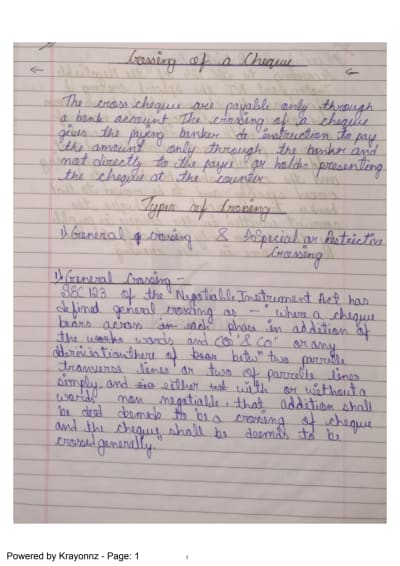 Crossing of a Cheque
The cross cheque are payable only through
a bank account The crossing of a cheque
gives the paying banker to instruction to pay
the amount only through the banker and
not directly to the payee or holder presenting
the cheque at the counter
Types of Crossing
1) General crossing & Special or Restrictive
Crossing
1) General Crossing -
SEC 123 of the Negotiable Instrument Act has
defined general crossing as - "where a cheque
bears across in each phase in addetion of
the works words and CO "& CO" or any
there of bear betw" two parrelle
tranverse lines or two of parrelle lines
simply, and either with or without a
words non negotiable, that addition shall
be deed demede to be a crossing of cheque
and the cheque shall be deemds to be
crossed generally."
Powered by Krayonnz - Page: 1